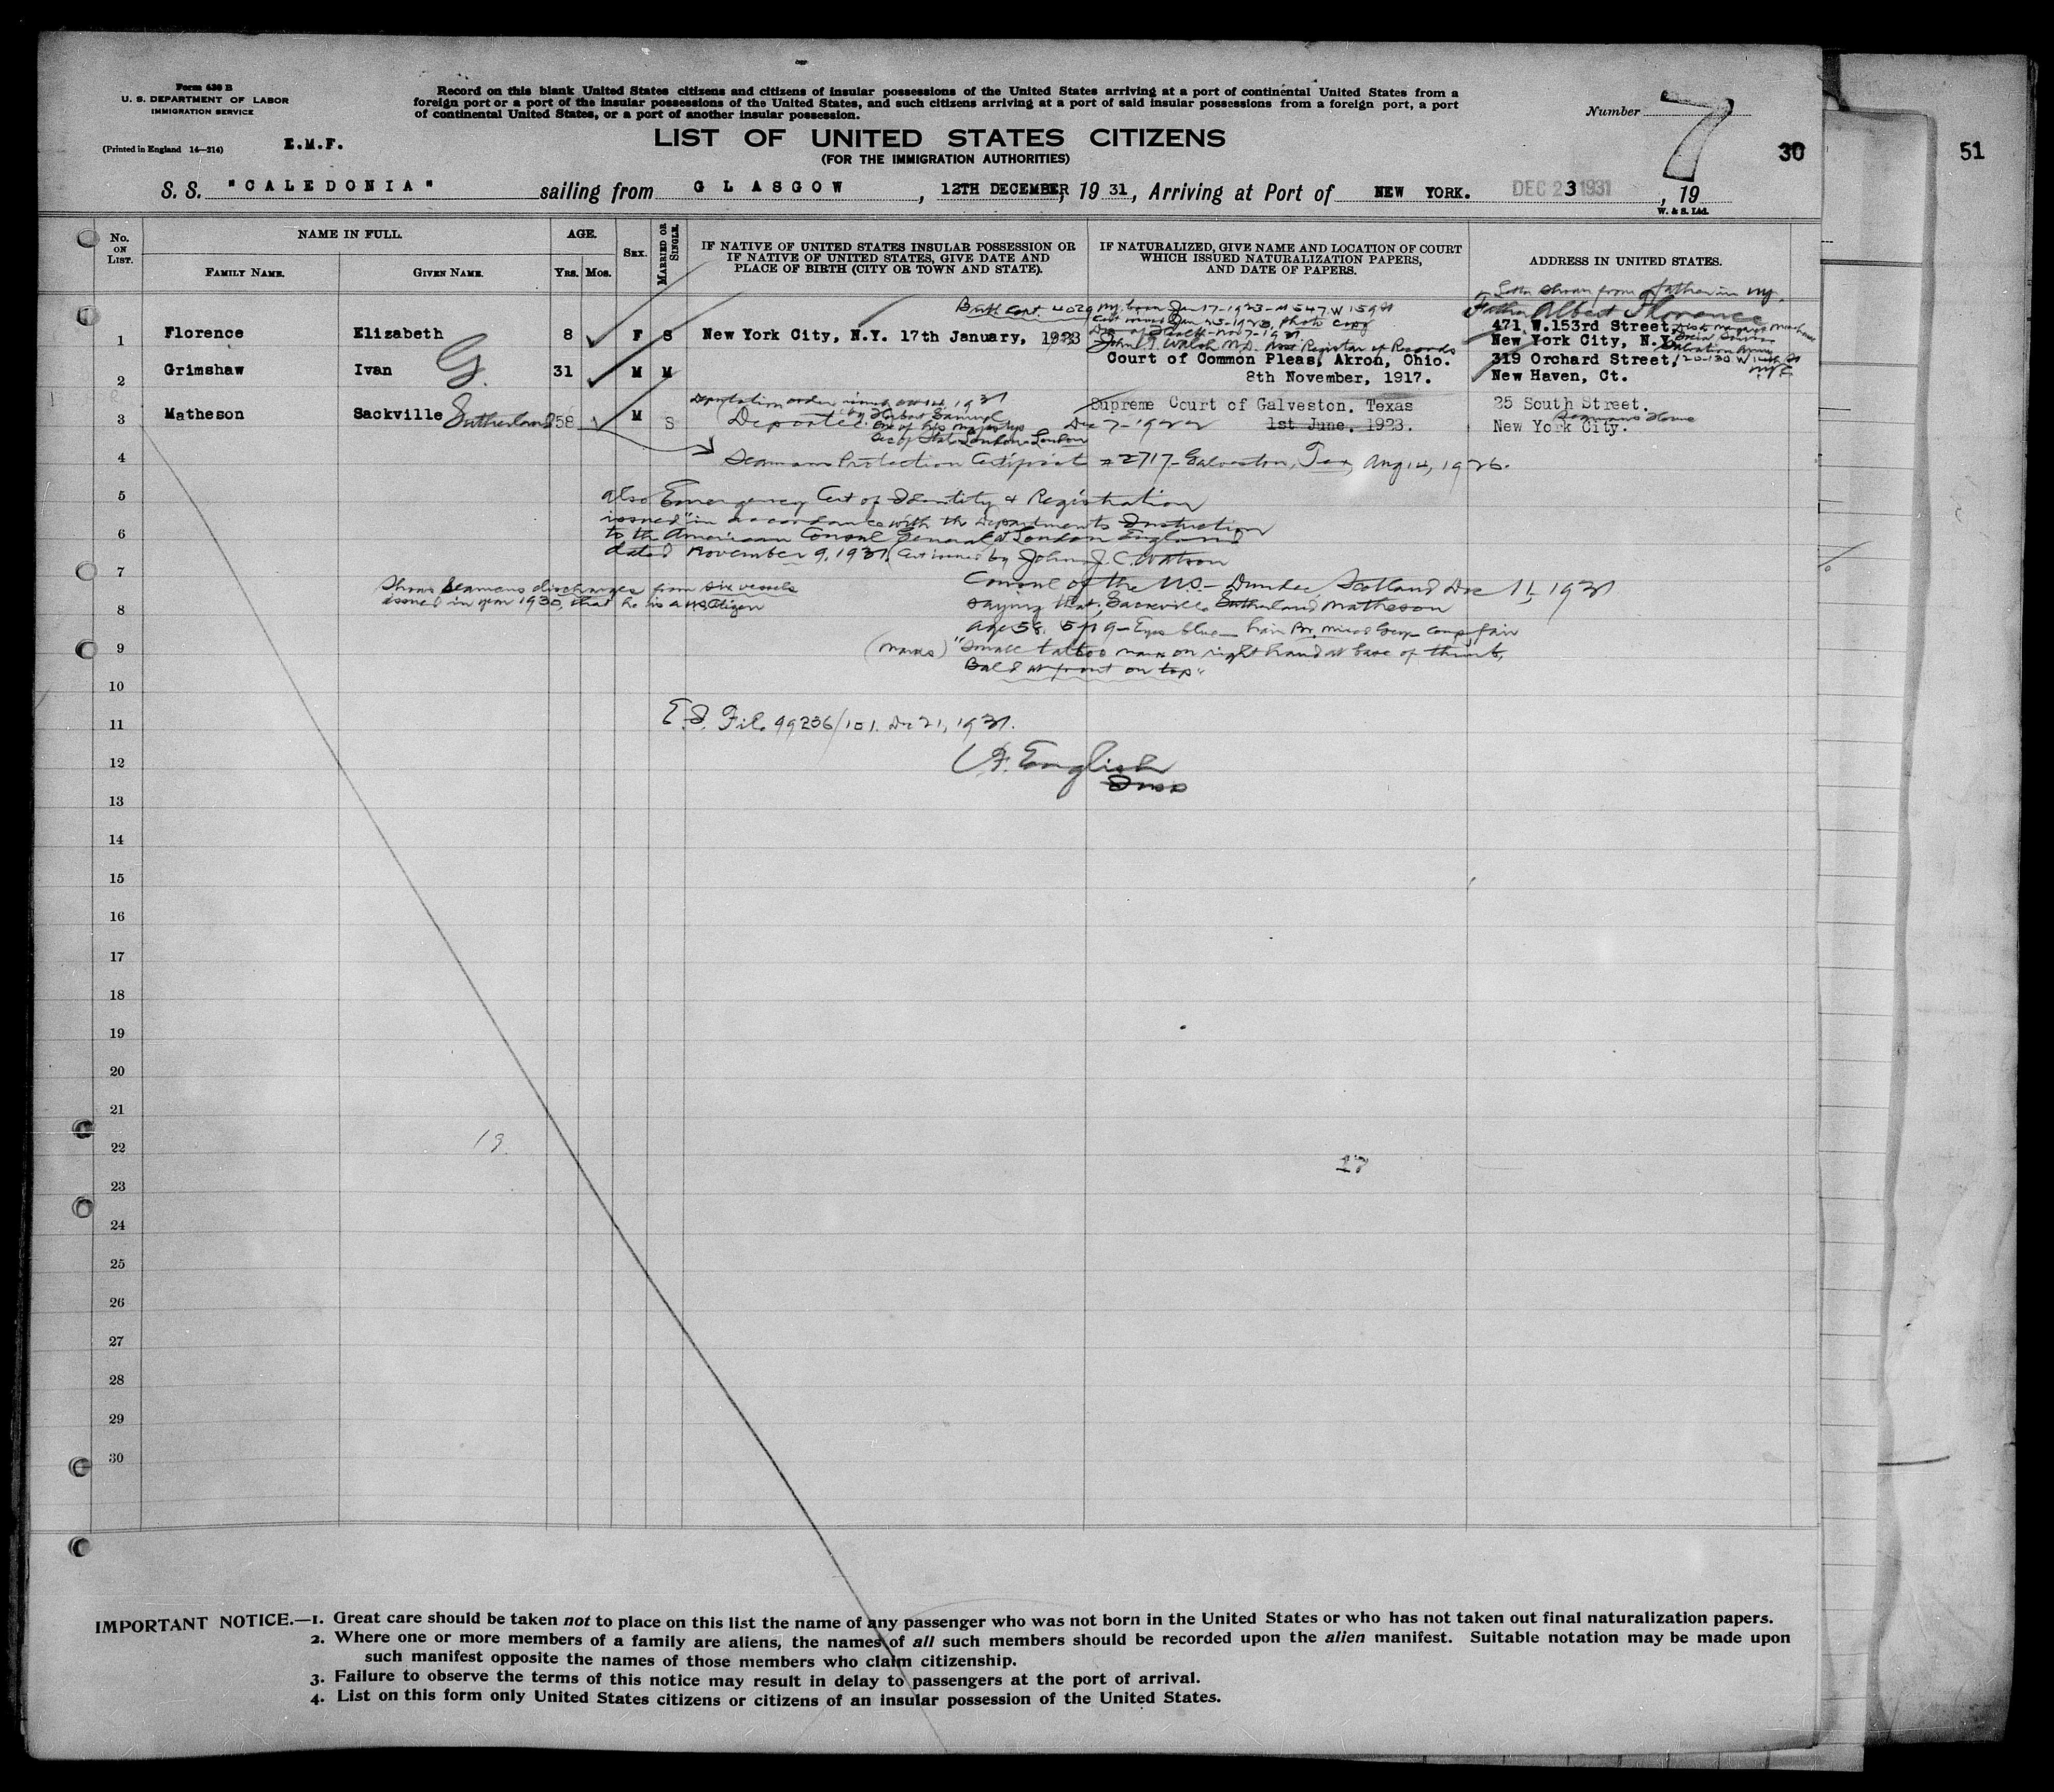 Form 630 B
U. S. DEPARTMENT OF LABOR
IMMIGRATION SERVICE
(Printed in England 14—214)
E.M.F.
Record on this blank United States citizens and citizens of insular possessions of the United States arriving at a port of continental United States from a
foreign port or a port of the insular possessions of the United States, and such citizens arriving at a port of said insular possessions from a foreign port, a port
of continental United States, or a port of another insular possession.
LIST OF UNITED STATES CITIZENS
(FOR THE IMMIGRATION AUTHORITIES)
Number 7
30
51
S. S. "CALEDONIA" sailing from GLASGOW, 12TH DECEMBER, 19 31, Arriving at Port of NEW YORK. DEC 23 1931, 19
W. & S. Ltd.
No. ON LIST.
NAME IN FULL.
FAMILY NAME.
GIVEN NAME.
AGE.
Yrs.
Mos.
SEX.
MARRIED OR SINGLE.
IF NATIVE OF UNITED STATES INSULAR POSSESSION OR
IF NATIVE OF UNITED STATES, GIVE DATE AND
PLACE OF BIRTH (CITY OR TOWN AND STATE).
IF NATURALIZED, GIVE NAME AND LOCATION OF COURT
WHICH ISSUED NATURALIZATION PAPERS,
AND DATE OF PAPERS.
ADDRESS IN UNITED STATES.
Letter shown from father in NY.
Father Albert Florence
Birth Cert. 4029 NY. born Jan 17-1923-at 547 W 159 St
Cert issued Jan 23-1923, Photo copy
Dep of Health-Nov 7-1931
John J. Walsh M.D. Asst Registrar of Records
1 Florence Elizabeth 8 F S New York City, N.Y. 17th January, 1923
471 W.153rd Street,
New York City, N.Y.
Salvation Army
120-130 W 14th St
NYC
2 Grimshaw Ivan G. 31 M M Court of Common Pleas, Akron, Ohio.
8th November, 1917.
319 Orchard Street,
New Haven, Ct.
Deportation order 1931
by Herbert Samuel
one of his majestys
Sec of State London
3 Matheson Sackville Sutherland 58 M S Deported
Supreme Court of Galveston. Texas
Dec 7-1922 1st June. 1923.
25 South Street.
Seamans Home
New York City.
4 Seamans Protection Certificate #2717-Galveston, Tex, Aug 14, 1926.
5 also Emergency Cert of Identity & Registration
issued "in accordance with the Departments Instruction
6 to the American Consul General at London England
dated November 9, 1931. Cert issued by John J. C. Watson
7 Consul of the U.S.- Dundee, Scotland Dec 11, 1931
Shows seamans discharges from six vessels
issued in year 1930, that he is a US Citizen
8 saying that Sackville Sutherland Matheson
age 58. 5 ft 9-Eyes blue-hair Br. mixed Grey-comp. fair
9 (marks) "Small tattoo mark on right hand at base of thumb,
Bald at front on top"
10
11 File 99236/101. Dec 21, 1931.
12 English
Insp
13
14
15
16
17
18
19
20
21
22
23
24
25
26
27
28
29
30
IMPORTANT NOTICE.—1. Great care should be taken not to place on this list the name of any passenger who was not born in the United States or who has not taken out final naturalization papers.
2. Where one or more members of a family are aliens, the names of all such members should be recorded upon the alien manifest. Suitable notation may be made upon
such manifest opposite the names of those members who claim citizenship.
3. Failure to observe the terms of this notice may result in delay to passengers at the port of arrival.
4. List on this form only United States citizens or citizens of an insular possession of the United States.